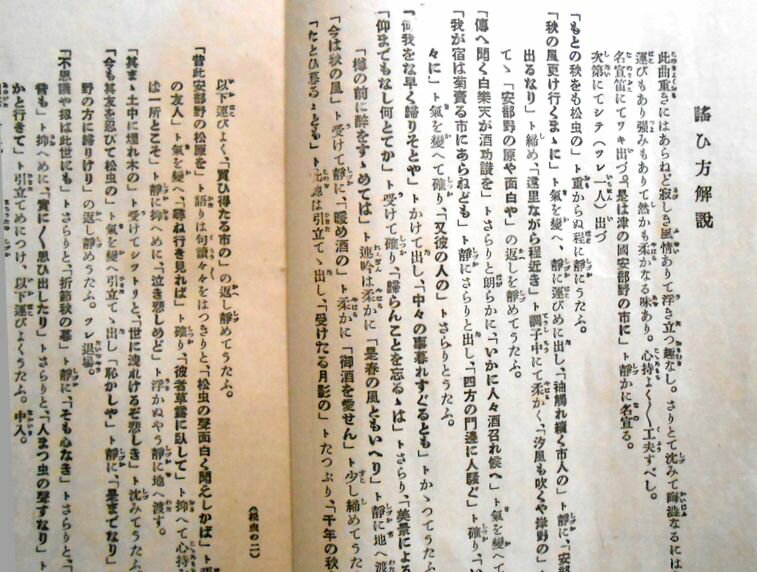 謠ひ方解説
此曲重きにはあらねど寂しき風情ありて浮き立つ趣なし。さりとて沈みて晦澁なるには
運びもあり强みもありて然かも柔かなる味あり。心持よく〱工夫すべし。
名宣笛にてワキ出づ。「是は津の國安部野の市に」靜かに名宣る。
次第にてシテ(ツレ一人)出づ
「もとの秋をも松虫の」ト重からぬ程に靜にうたふ。
「秋の風更け行くまゝに」ト氣を變へ、靜に運びめに出し、「袖觸れ續く市人の」ト靜に、「安部
出るなり」ト締め、「遠里ながら程近き」ト調子中にて柔かく、「汐風も吹くや岸野の」
てゝ「安部野の原や面白や」の返しを靜めてうたふ。
「傳へ聞く白樂天が酒功讃を」ト さらりと朗らかに、「いかに人々酒召れ候へ」ト氣を變へて
「我が宿は菊賣る市にあらねども」ト靜にさらりと出し、「四方の門邊に人騷ぐ」ト確り、
々に」ト氣を變へて確り、「又彼の人の」ト さらりとうたふ。
「何我をな早く歸りそとや」ト かけて出し、「中々の事暮れすぐるとも」ト かゝつてうたふ
「仰までもなし何とてか」ト受けて確り、「歸らんことを忘るゝは」ト さらり、「美景による
「樽の前に醉をすゝめては」ト連吟は柔かに「是春の風ともいへり」ト靜に地へ渡
「今は秋の風」ト受けて靜に、「暖め酒の」ト柔かに「御酒を愛せん」ト少し締めてうた
「たとひ暮るゝとも」ト此邊は引立てゝ出し、「受けたる月影の」ト たつぷり、「千年の秋
(松虫の二)
以下運びよく、「買ひ得たる市の」の返し靜めてうたふ。
「昔此安部野の松原を」ト語りは句讀々々をはつきりと「松虫の聲面白く聞えしかば」ト
の友人」ト氣を變へ、「尋ね行き見れば」ト確り、「彼者草露に臥して」ト抑へて心持
は一所とこそ」ト靜に抑へめに、「泣き悲しめど」ト浮かぬやう靜に地へ渡す。
「其まゝ土中に埋れ木の」ト受けてシツトリと、「世に洩れけるぞ悲しき」ト沈みてうたふ
「今も其友を忍びて松虫の」ト氣を變へ引立てゝ出し「恥かしや」ト靜に、「是までなり」
野の方に歸りけり」の返し靜めうたふ。ツレ退場。
「不思議や扨は此世にも」ト さらりと、「折節秋の暮」ト靜に、「そも心なき」ト さらりと、
昔も」ト抑へめに、「實に〱思ひ出したり」ト さらりと、「人まつ虫の聲すなり」ト
かと行きて」ト引立てめにつけ、以下運びよくうたふ。中入。